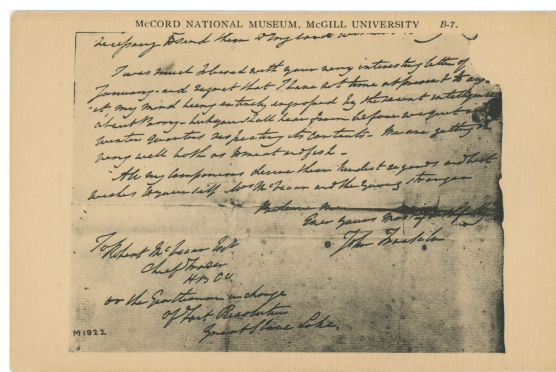 McCORD NATIONAL MUSEUM, McGILL UNIVERSITY B-7.
necessary to send them to England
I was much pleased with your very interesting letter of
January - and regret that I have not time at present to
it my mind being entirely engrossed by the recent intelligence
about Parry - but you shall hear from me before we quit
winter quarters respecting its contents - We are getting on
very well both as to meat and fish -
All my companions desire their kindest regards and best
wishes to yourself Mrs McVicar and the young stranger
Believe me
Ever yours most
John Franklin
To Robert McVicar Esq
Chief Trader
H B Co
or the Gentleman in charge
of Fort Resolution
Great Slave Lake.
M1922